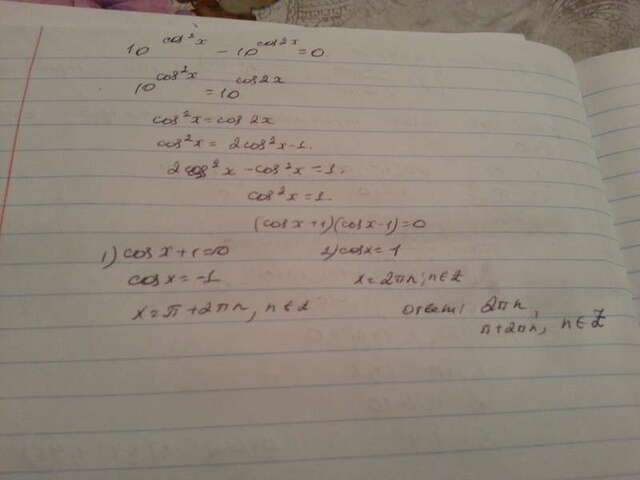 10^cos²x − 10^cos2x = 0.
10^cos²x = 10^cos2x
cos²x = cos 2x
cos²x = 2cos²x-1.
2cos²x - cos²x = 1.
cos²x = 1.
(cosx+1)(cosx-1)=0
1) cosx+1=0 2) cosx= 1
cosx = -1 x = 2πn, n∈Z
x = π + 2πn, n∈Z Ответ: 2πn,
π+2πn, n∈Z